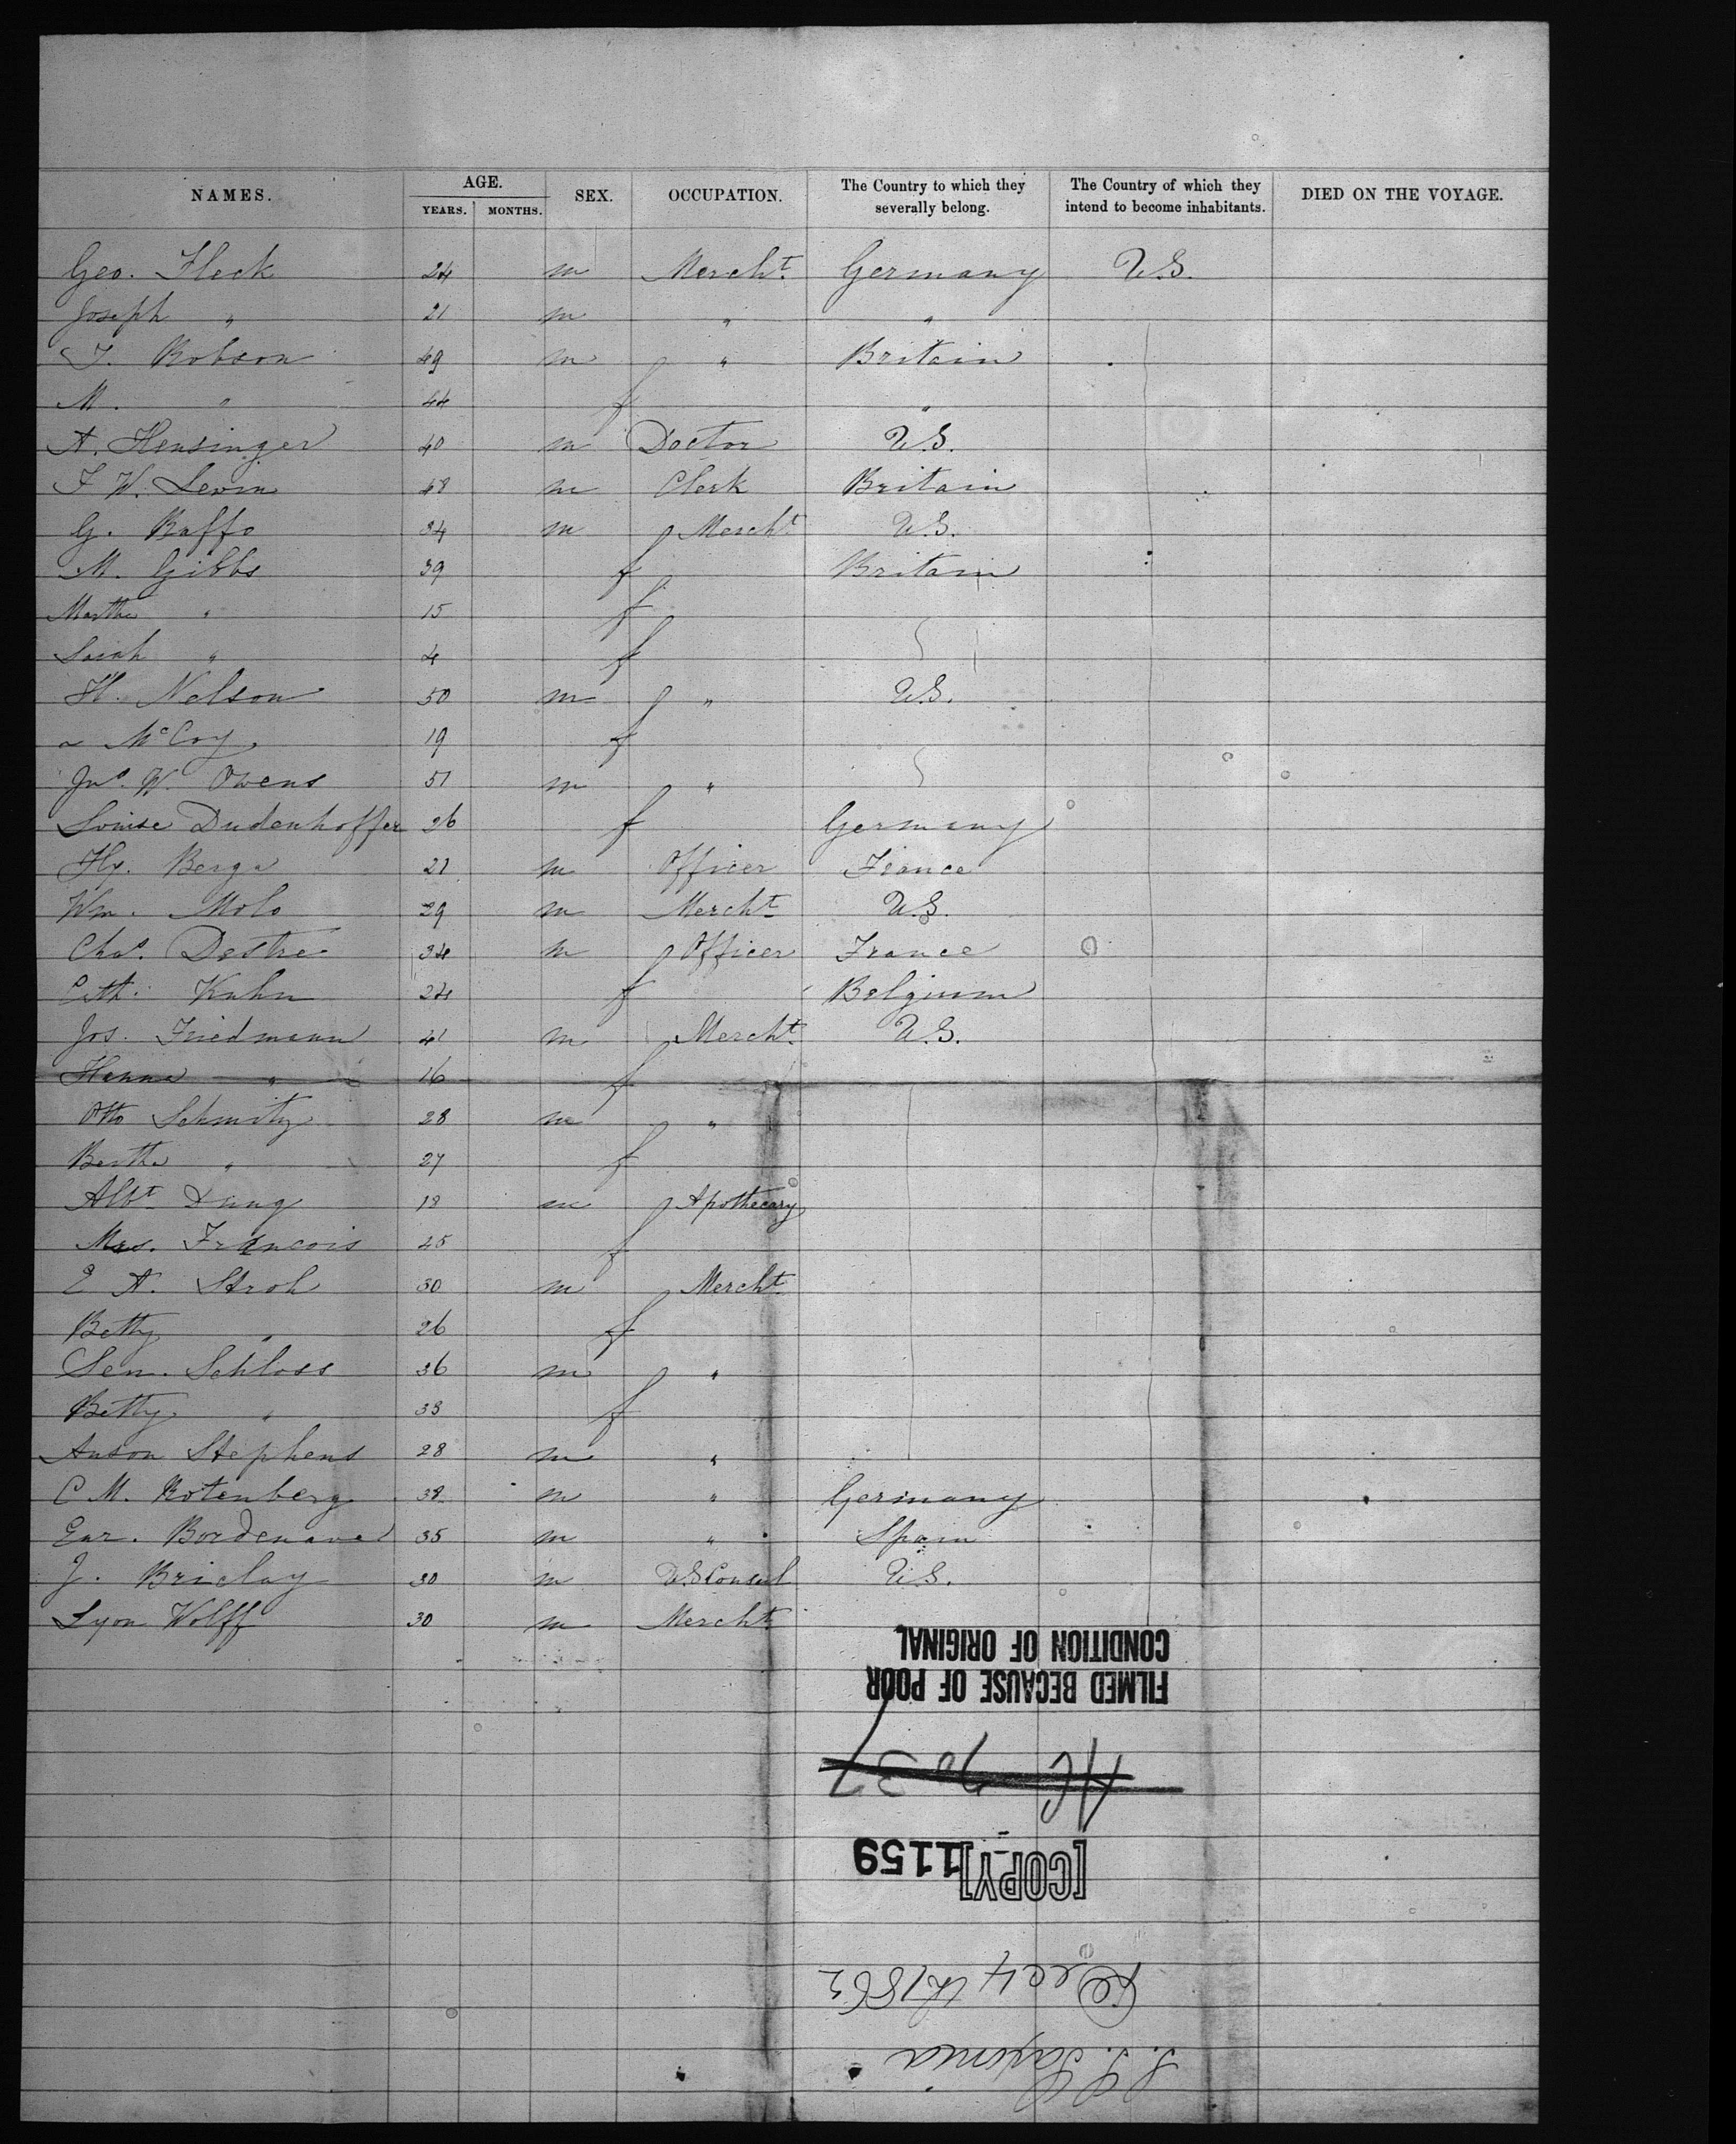 NAMES. AGE. SEX. OCCUPATION. The Country to which they severally belong. The Country of which they intend to become inhabitants. DIED ON THE VOYAGE.
YEARS. MONTHS.
Geo. Fleck 24 m Mercht. Germany U.S.
Joseph " 21 m " "
T. Robson 49 m " Britain
M. " 44 f "
A. Hensinger 40 m Doctor U.S.
F W. Levin 48 m Clerk Britain
G. Buffo 34 m Mercht U.S.
M. Gibbs 39 f Britain
Martha " 15 f
Sarah " 4 f
H. Nelson 50 m " U.S.
McCoy 19 f
Jno. W. Owens 51 m "
Louise Dudenhoffer 26 f Germany
Hy. Berga 21 m Officer France
Wm. Molo 29 m Mercht U.S.
Chas. Destre 34 m Officer France
Cath. Kuhn 24 f Belgium
Jos. Friedmann 41 m Mercht. U.S.
Hanna " 16 f
Otto Schmitz 28 m "
Bertha " 27 f
Albt Dung 18 m Apothecary
Mrs. Francois 25 f
E A. Stroh 30 m Mercht
Betty " 26 f
Sen. Schloss 36 m "
Betty " 33 f
Anson Stephens 28 m "
C M. Rotenberg 38 m " Germany
Enr. Bordenave 35 m " Spain
J. Briclay 30 m U.S Consul U.S.
Lyon Wolff 30 m Mercht
FILMED BECAUSE OF POOR
CONDITION OF ORIGINAL
[COPY] 1159
S. S. Saxonia
Dec 4th 1863